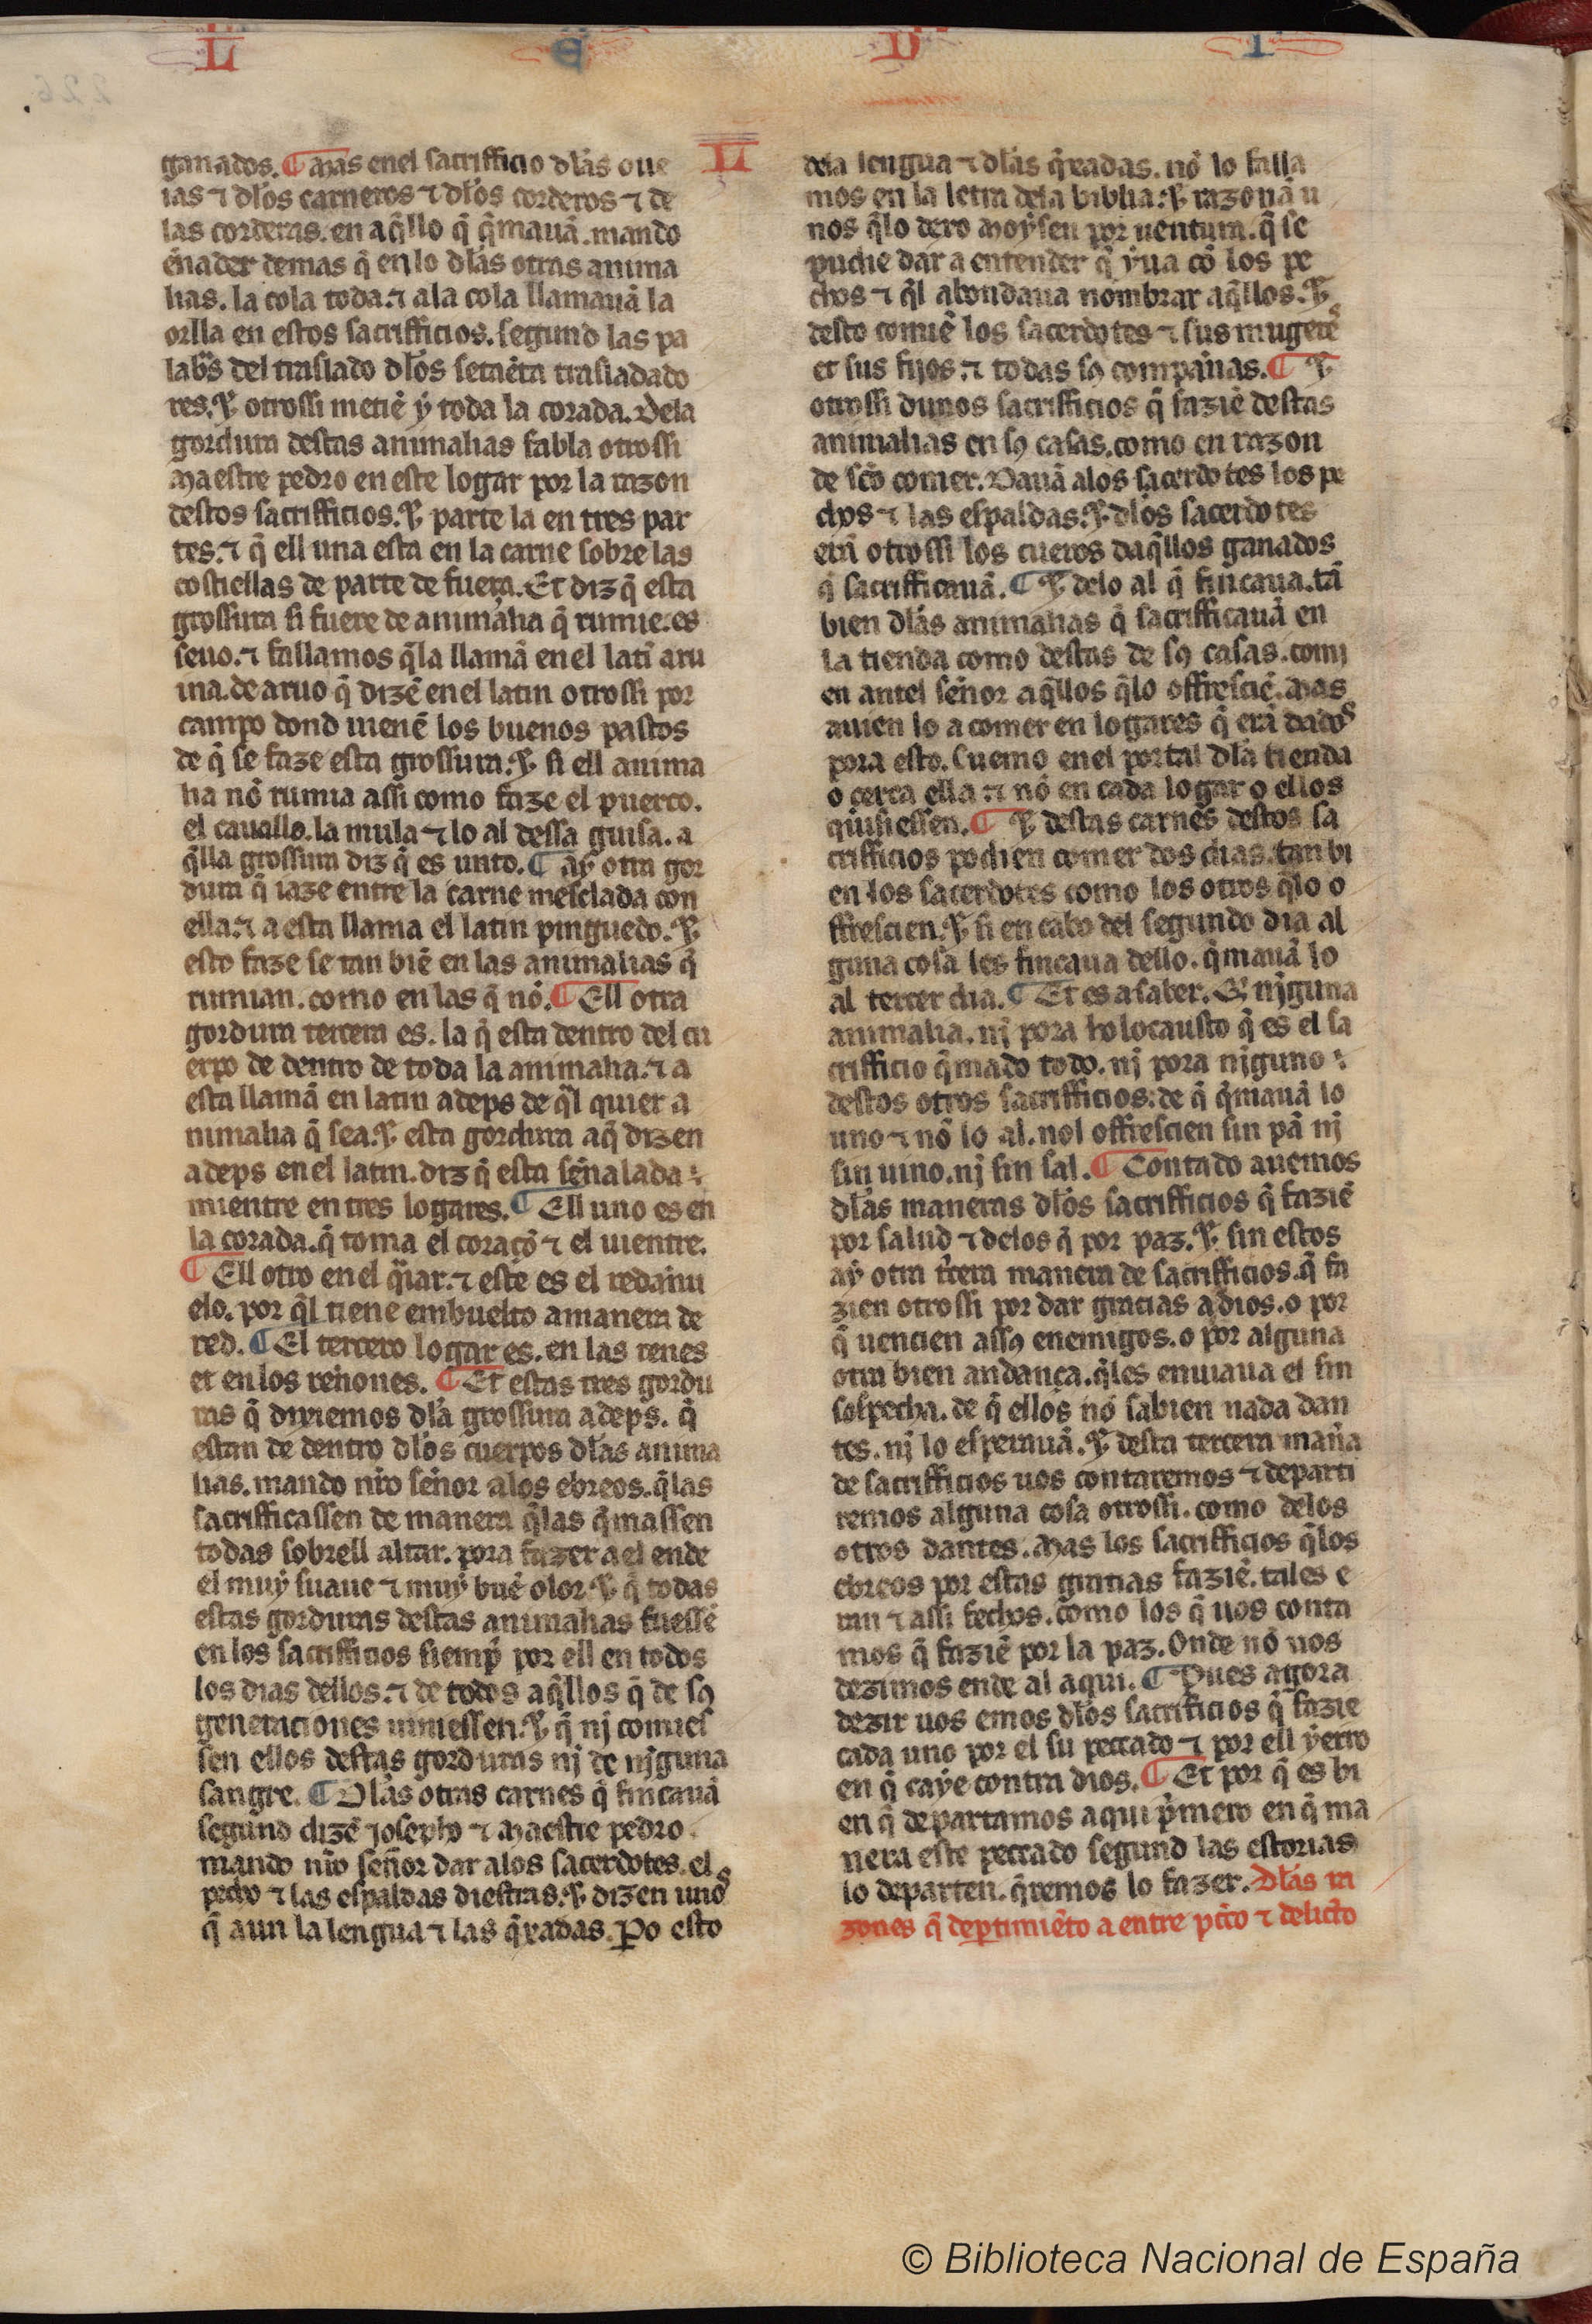 L E U I
L
ganados. ¶ Mas enel sacrifficio dlas oue
ias ⁊ dlos carneros ⁊ dlos corderos ⁊ de
las corderas. en aq̃llo q̃ q̃mauã. mando
ẽnader demas q̃ en lo dlas otras anima
lias. la cola toda. ⁊ ala cola llamauã la
orlla en estos sacrifficios. segund las pa
labͣs del traslado dlos setaẽta trasladado
res. ⁊ otrossi metiẽ ẏ toda la corada. Dela
gordura destas animalias fabla otrossi
Maestre pedro en este logar por la razon
destos sacrifficios. ⁊ parte la en tres par
tes. ⁊ q̃ ell una esta en la carne sobre las
costiellas de parte de fuera. Et diz q̃ esta
grossura si fuere de animalia q̃ rumie. es
seuo. ⁊ fallamos q̃la llamã enel latĩ aru
ina. de aruo q̃ dizẽ en el latin otrossi por
campo dond uienẽ los buenos pastos
de q̃ se faze esta grossura. ⁊ si ell anima
lia nõ rumia assi como faze el puerco.
el cauallo. la mula ⁊ lo al dessa guisa. a
q̃lla grossura diz q̃ es unto. ¶ aẏ otra gor
dura q̃ iaze entre la carne mesclada con
ella. ⁊ a esta llama el latin pinguedo. ⁊
esto faze se tan biẽ en las animalias q̃
rumian. como en las q̃ nõ. ¶ Ell otra
gordura tercera es. la q̃ esta dentro del cu
erpo de dentro de toda la animalia. ⁊ a
esta llamã en latin adeps de q̃l quier a
nimalia q̃ sea. ⁊ esta gordura aq̃ dizen
adeps en el latin. diz q̃ esta señalada
mientre en tres logares. ¶ Ell uno es en
la corada. q̃ toma el coraçõ ⁊ el uientre.
¶ Ell otro en el q̃iar. ⁊ este es el redañu
elo. por q̃l tiene embuelto a manera de
red. ¶ El tercero logar es. en las renes
et en los reñones. ¶ Et estas tres gordu
ras q̃ dixiemos dla grossura adeps. q̃
estan de dentro dlos cuerpos dlas anima
lias. mando nr̃o señor alos ebreos. q̃las
sacrifficassen de manera q̃las q̃massen
todas sobrell altar. pora fazer a el ende
el muẏ suaue ⁊ muẏ buẽ olor. ⁊ q̃ todas
estas gorduras destas animalias fuessẽ
en los sacrifficios siemp̃ por ell en todos
los dias dellos. ⁊ de todos aq̃llos q̃ de sꝯ
generaciones uiniessen. ⁊ q̃ nj comies
sen ellos destas gorduras nj de njguna
sangre. ¶ Dlas otras carnes q̃ fincauã
segund dizẽ josepho ⁊ Maestre pedro
mando nr̃o señor dar alos sacerdotes. el
pecho ⁊ las espaldas diestras. ⁊ dizen unos
q̃ aun la lengua ⁊ las q̃xadas. Po esto
dela lengua ⁊ dlas q̃xadas. nõ lo falla
mos en la letra dela biblia. ⁊ razonã u
nos q̃lo dexo Moẏsen por uentura. q̃ se
pudie dar a entender q̃ ẏua cõ los pe
chos ⁊ q̃l abondaua nombrar aq̃llos. ⁊
desto comiẽ los sacerdotes ⁊ sus mugeres
et sus fijos. ⁊ todas sꝯ compañas. ¶ ⁊
otrossi dunos sacrifficios q̃ faziẽ destas
animalias en sꝯ casas. como en razon
de sc̃o comer. Dauã alos sacerdotes los pe
chos ⁊ las espaldas. ⁊ dlos sacerdotes
erã otrossi los cueros daq̃llos ganados
q̃ sacrifficauã. ¶ ⁊ delo al q̃ fincaua. tã
bien dlas animalias q̃ sacrifficauã en
la tienda como destas de sꝯ casas. comi
en antel señor aq̃llos q̃lo offresciẽ. Mas
auien lo a comer en logares q̃ erã dados
pora esto. Cuemo enel portal dla tienda
o cerca ella. ⁊ nõ en cada logar o ellos
quisiessen. ¶ ⁊ destas carnes destos sa
crifficios podien comer dos dias. tan bi
en los sacerdotes como los otros q̃lo o
ffrescien. ⁊ si en cabo del segundo dia al
guna cosa les fincaua dello. q̃mauã lo
al tercer dia. ¶ Et es a saber. Q̃ njguna
animalia. nj pora holocausto q̃ es el sa
crifficio q̃mado todo. nj pora njguno
destos otros sacrifficios: de q̃ q̃mauã lo
uno ⁊ nõ lo al. nol offrescien sin pã nj
sin uino. nj sin sal. ¶ Contado auemos
dlas maneras dlos sacrifficios q̃ faziẽ
por salud ⁊ delos q̃ por paz. ⁊ sin estos
aẏ otra tc̃era manera de sacrifficios. q̃ fa
zien otrossi por dar gracias a dios. o por
q̃ uencien assꝯ enemigos. o por alguna
otra bien andança. q̃les enuiaua el sin
sospecha. de q̃ ellos nõ sabien nada dan
tes. nj lo esperauã. ⁊ desta tercera maña
de sacrifficios uos contaremos ⁊ departi
remos alguna cosa otrossi. como delos
otros dantes. Mas los sacrifficios q̃los
ebreos por estas gracias faziẽ. tales e
ran ⁊ assi fechos. como los q̃ uos conta
mos q̃ faziẽ por la paz. Onde nõ uos
dezimos ende al aqui. ¶ Pues agora
dezir uos emos dlos sacrificios q̃ fazie
cada uno por el su peccado ⁊ por ell ẏerro
en q̃ caẏe contra dios. ¶ Et por q̃ es bi
en q̃ departamos aqui p̃mero en q̃ ma
nera este peccado segund las estorias
lo departen. q̃remos lo fazer. Dlas ra
zones q̃ deꝑtimiẽto a entre pcc̃o ⁊ delicto
© Biblioteca Nacional de España